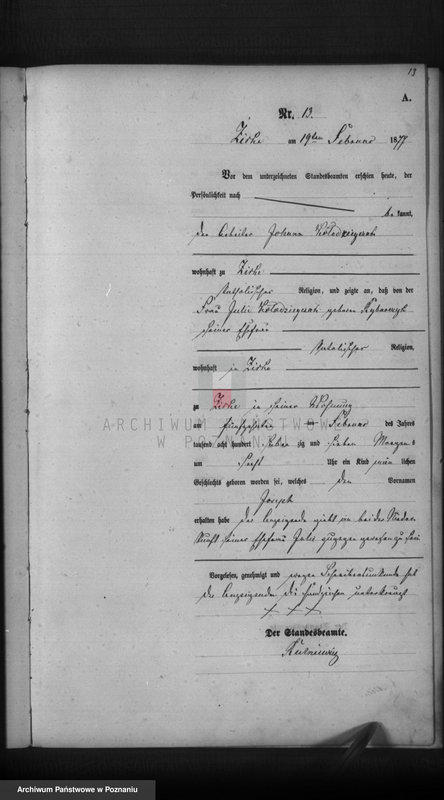 13
A.
Nr. 13.
Zirke am 19ten Februar 1877
Vor dem unterzeichneten Standesbeamten erschien heute, der
Persönlichkeit nach
be kannt,
der Arbeiter Johann
wohnhaft zu Zirke
katholischer Religion, und zeigte an, daß von der
Frau Julie geboren
seiner Ehefrau
katholischer Religion,
wohnhaft in Zirke
zu Zirke in seiner Wohnung
ARCHIWUM PAŃSTWOWE
W POZNANIU
am fünfzehnten Februar des Jahres
tausend acht hundert sieben zig und sieben Morgens
um sechs Uhr ein Kind männlichen
Geschlechts geboren worden sei, welches den Vornamen
Joseph
erhalten habe der Anzeigende bei der Nieder
kunft seiner Ehefrau Julie zugegen gewesen zu sein
Vorgelesen, genehmigt und wegen Schreibensunkunde hat
der Anzeigende die Handzeichen unterkreuzt
+ + +
Der Standesbeamte.
Archiwum Państwowe w Poznaniu